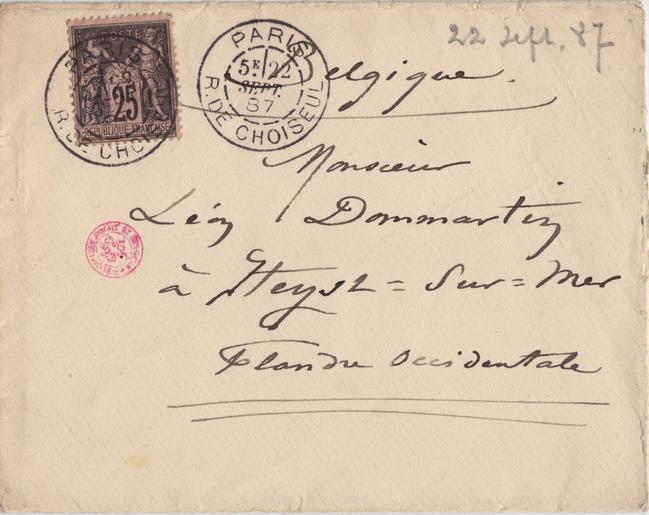 22 Sept. 87
POSTE
25
REPUBLIQUE FRANÇAISE
PARIS
R. DE CHOISEUL
PARIS
5E 22
SEPT.
87
R. DE CHOISEUL
Belgique.
Monsieur
Léon Dommartin
à Heyst=Sur=Mer
Flandre Occidentale